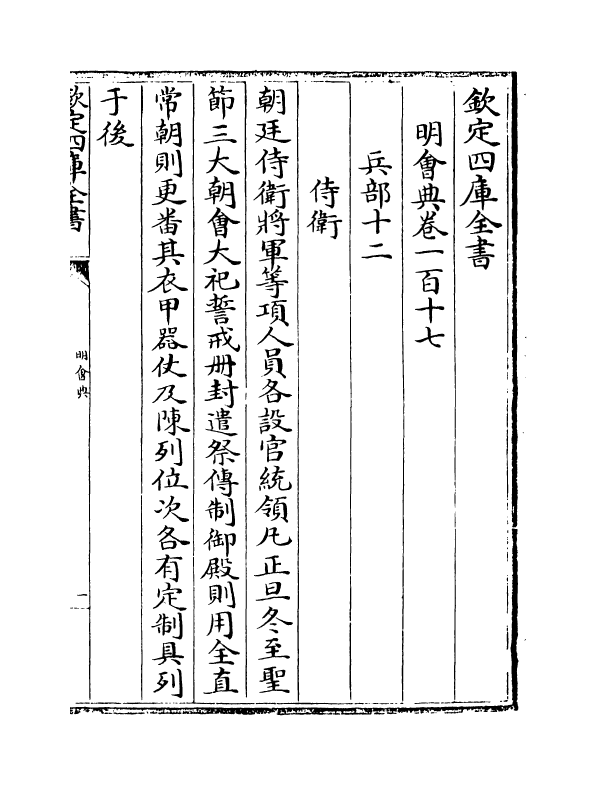 欽定四庫全書
明會典卷一百十七
兵部十二
侍衛
朝廷侍衛將軍等項人員各設官統領凡正旦冬至聖
節三大朝會大祀誓戒冊封遣祭傳制御殿則用全直
常朝則更番其衣甲器仗及陳列位次各有定制具列
于後
欽定四庫全書
明會典
一